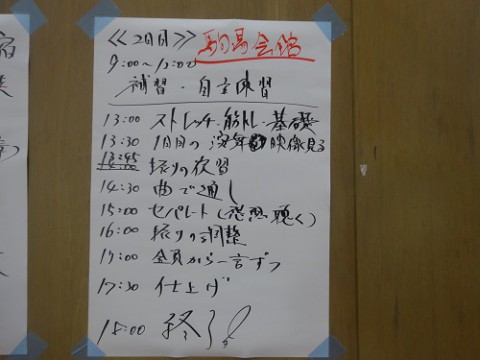 ≪2日目≫ 駒場会館
9:00〜12:00
補習・自主練習
13:00 ストレッチ・筋トレ・基礎
13:30 1日目の 映像見る
13:45 振りの復習
14:30 曲で通し
15:00 セパレート(感想聴く)
16:00 振りの調整
17:00 全員から一言ずつ
17:30 仕上げ
18:00 終了!